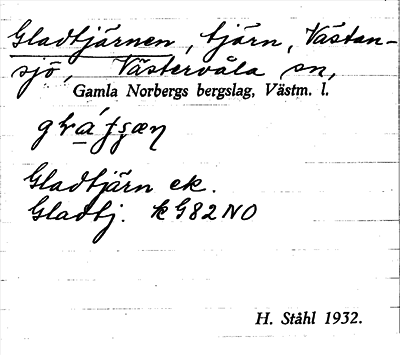 Gladtjärnen, tjärn, Västan-
sjö, Västervåla sn,
Gamla Norbergs bergslag, Västm. l.
Gladtjärn ek.
Gladtj. k G82NO
H. Ståhl 1932.